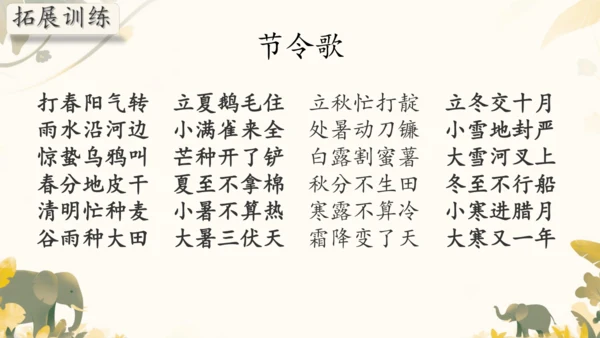 拓展训练
节令歌
打春阳气转 立夏鹅毛住 立秋忙打靛 立冬交十月
雨水沿河边 小满雀来全 处暑动刀镰 小雪地封严
惊蛰乌鸦叫 芒种开了铲 白露割蜜薯 大雪河叉上
春分地皮干 夏至不拿棉 秋分不生田 冬至不行船
清明忙种麦 小暑不算热 寒露不算冷 小寒进腊月
谷雨种大田 大暑三伏天 霜降变了天 大寒又一年